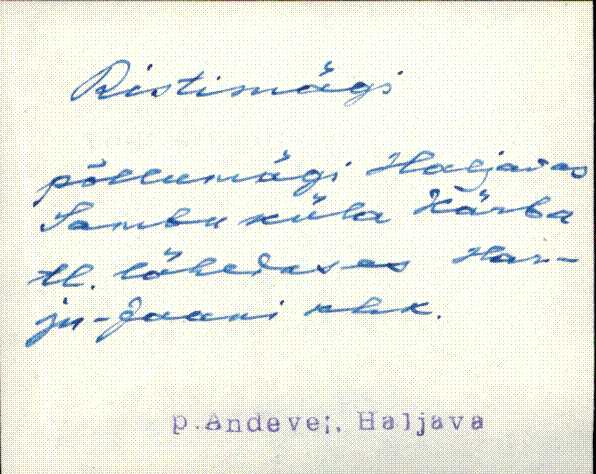 Ristimägi
põllumägi Haljavas
Sambu küla Kärba
tl. läheduses Har-
ju-Jaani khk.
p.Andevei, Haljava